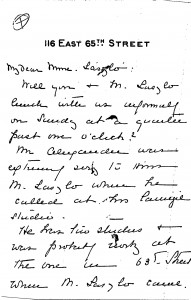 116 EAST 65TH STREET
My dear Mme. László:
Will you & M. Laszlo
lunch with us informally
on Sunday at a quarter
past one o'clock?
Mr Alexander was
extremely sorry to
M. Laszlo when he
called at his Carnegie
studio.
He has two studios &
was probably work at
the one in 63rd Street
when M. Laszlo came.